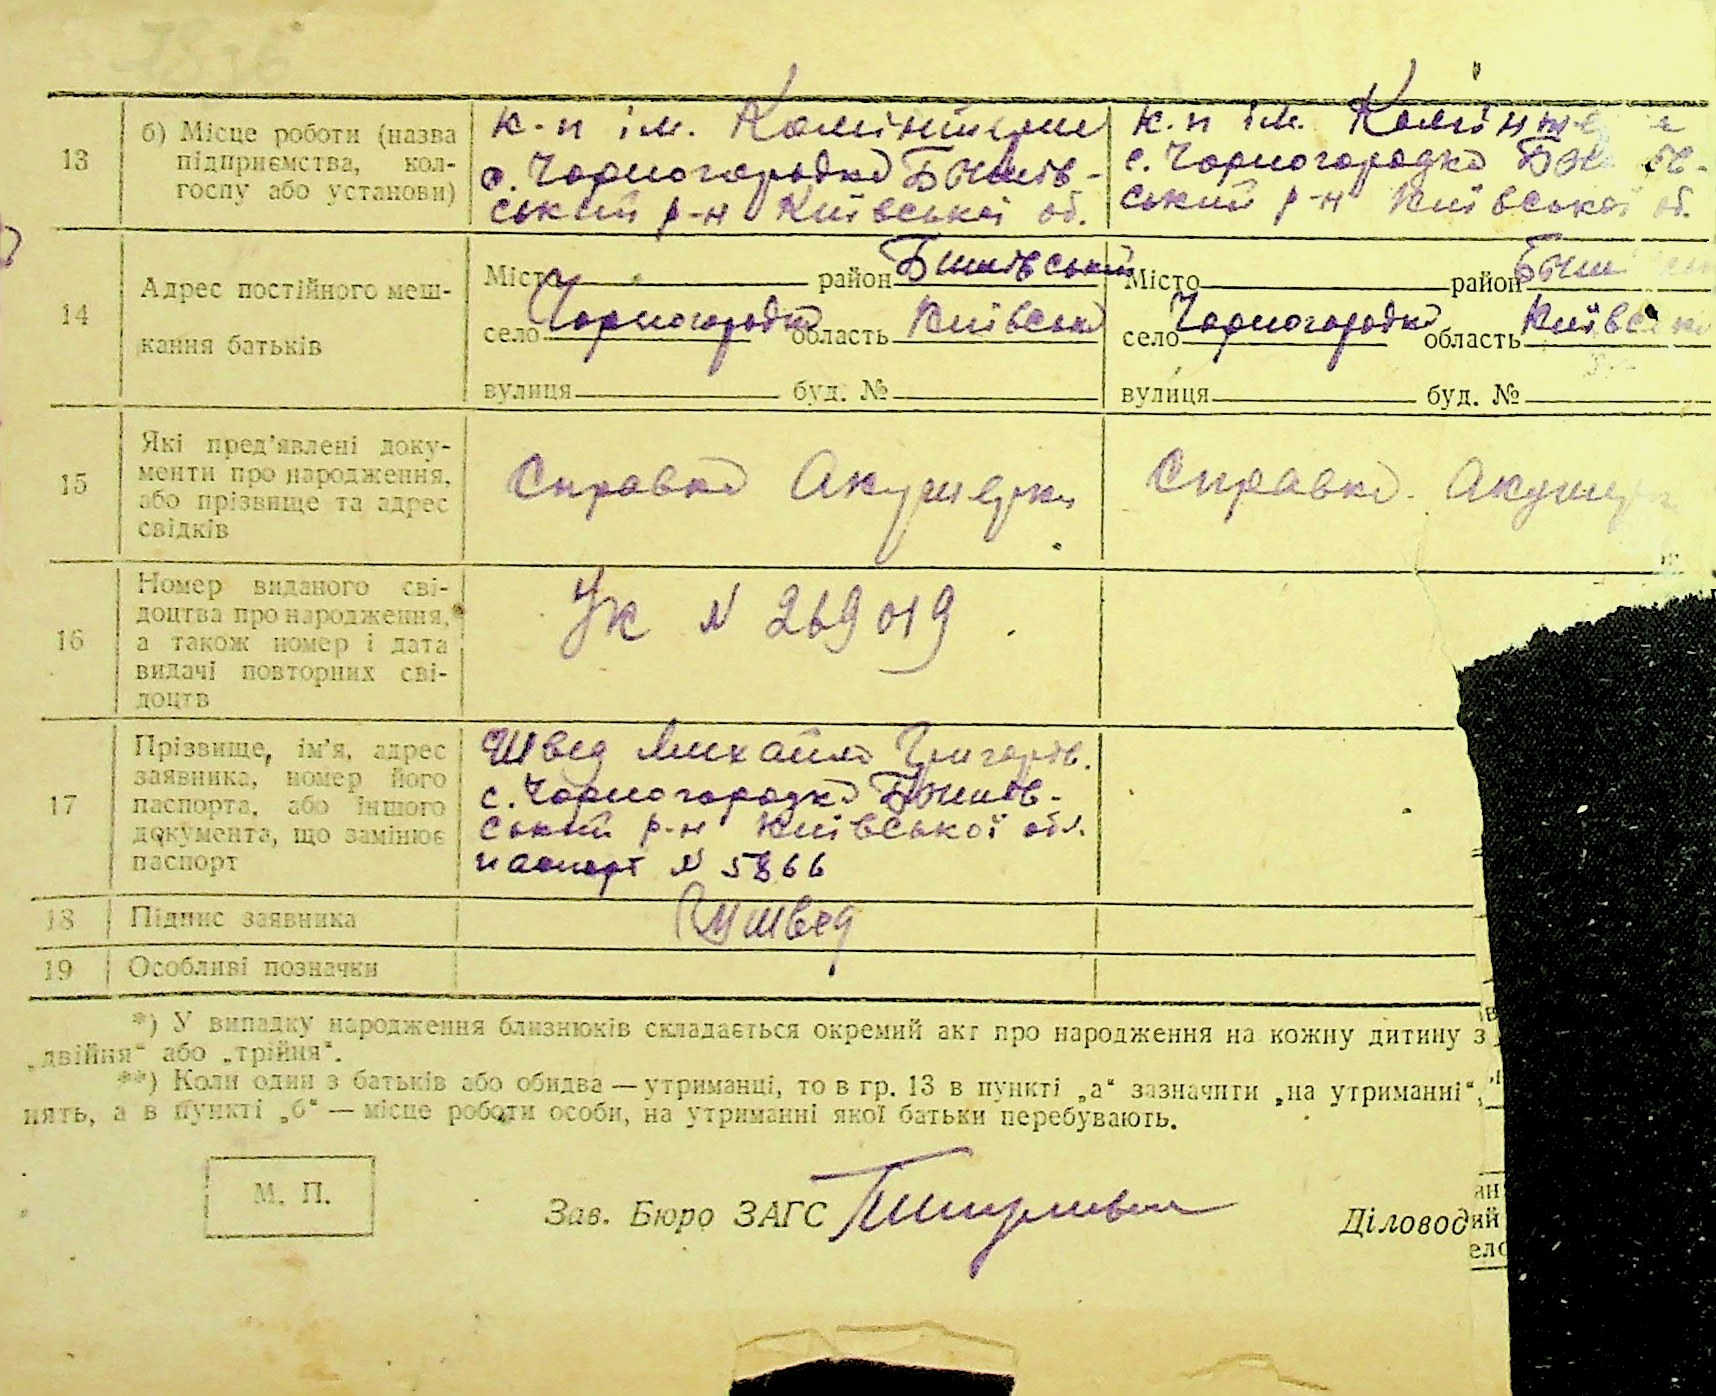 13
б) Місце роботи (назва
підприємства, кол-
госпу або установи)
к.п ім. Комінтерну
с. Чорногородка Бишів-
ський р-н Київської об.
к.п ім.
с. Чорногородка
ський р-н Київської об.
14
Адрес постійного меш-
кання батьків
Місто район Бишівський
село Чорногородка область Київськ
вулиця буд. №
Місто район
село Чорногородка область
вулиця буд. №
15
Які пред'явлені доку-
менти про народження,
або прізвище та адрес
свідків
Справка Акушерки
Справка
16
Номер виданого сві-
доцтва про народження,
а також номер і дата
видачі повторних сві-
доцтв
УК N 269019
17
Прізвище, ім'я, адрес
заявника, номер його
паспорта, або іншого
документа, що замінює
паспорт
Швед Михайло Григорів.
с. Чорногородка Бишів-
ський р-н Київської обл.
паспорт N 5866
18
Підпис заявника
Швед
19
Особливі позначки
*) У випадку народження близнюків складається окремий акт про народження на кожну дитину з
„двійня“ або „трійня“.
**) Коли один з батьків або обидва — утриманці, то в гр. 13 в пункті „а“ зазначити „на утриманні“,
нять, а в пункті „б“ — місце роботи особи, на утриманні якої батьки перебувають.
М. П.
Зав. Бюро ЗАГС
Діловод